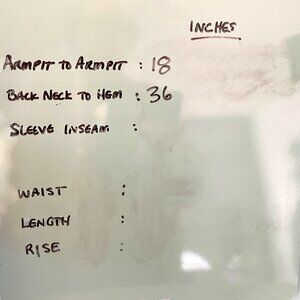 INCHES
ARMPIT TO ARMPIT : 18
BACK NECK TO HEM : 36
SLEEVE INSEAM :
WAIST :
LENGTH :
RISE :